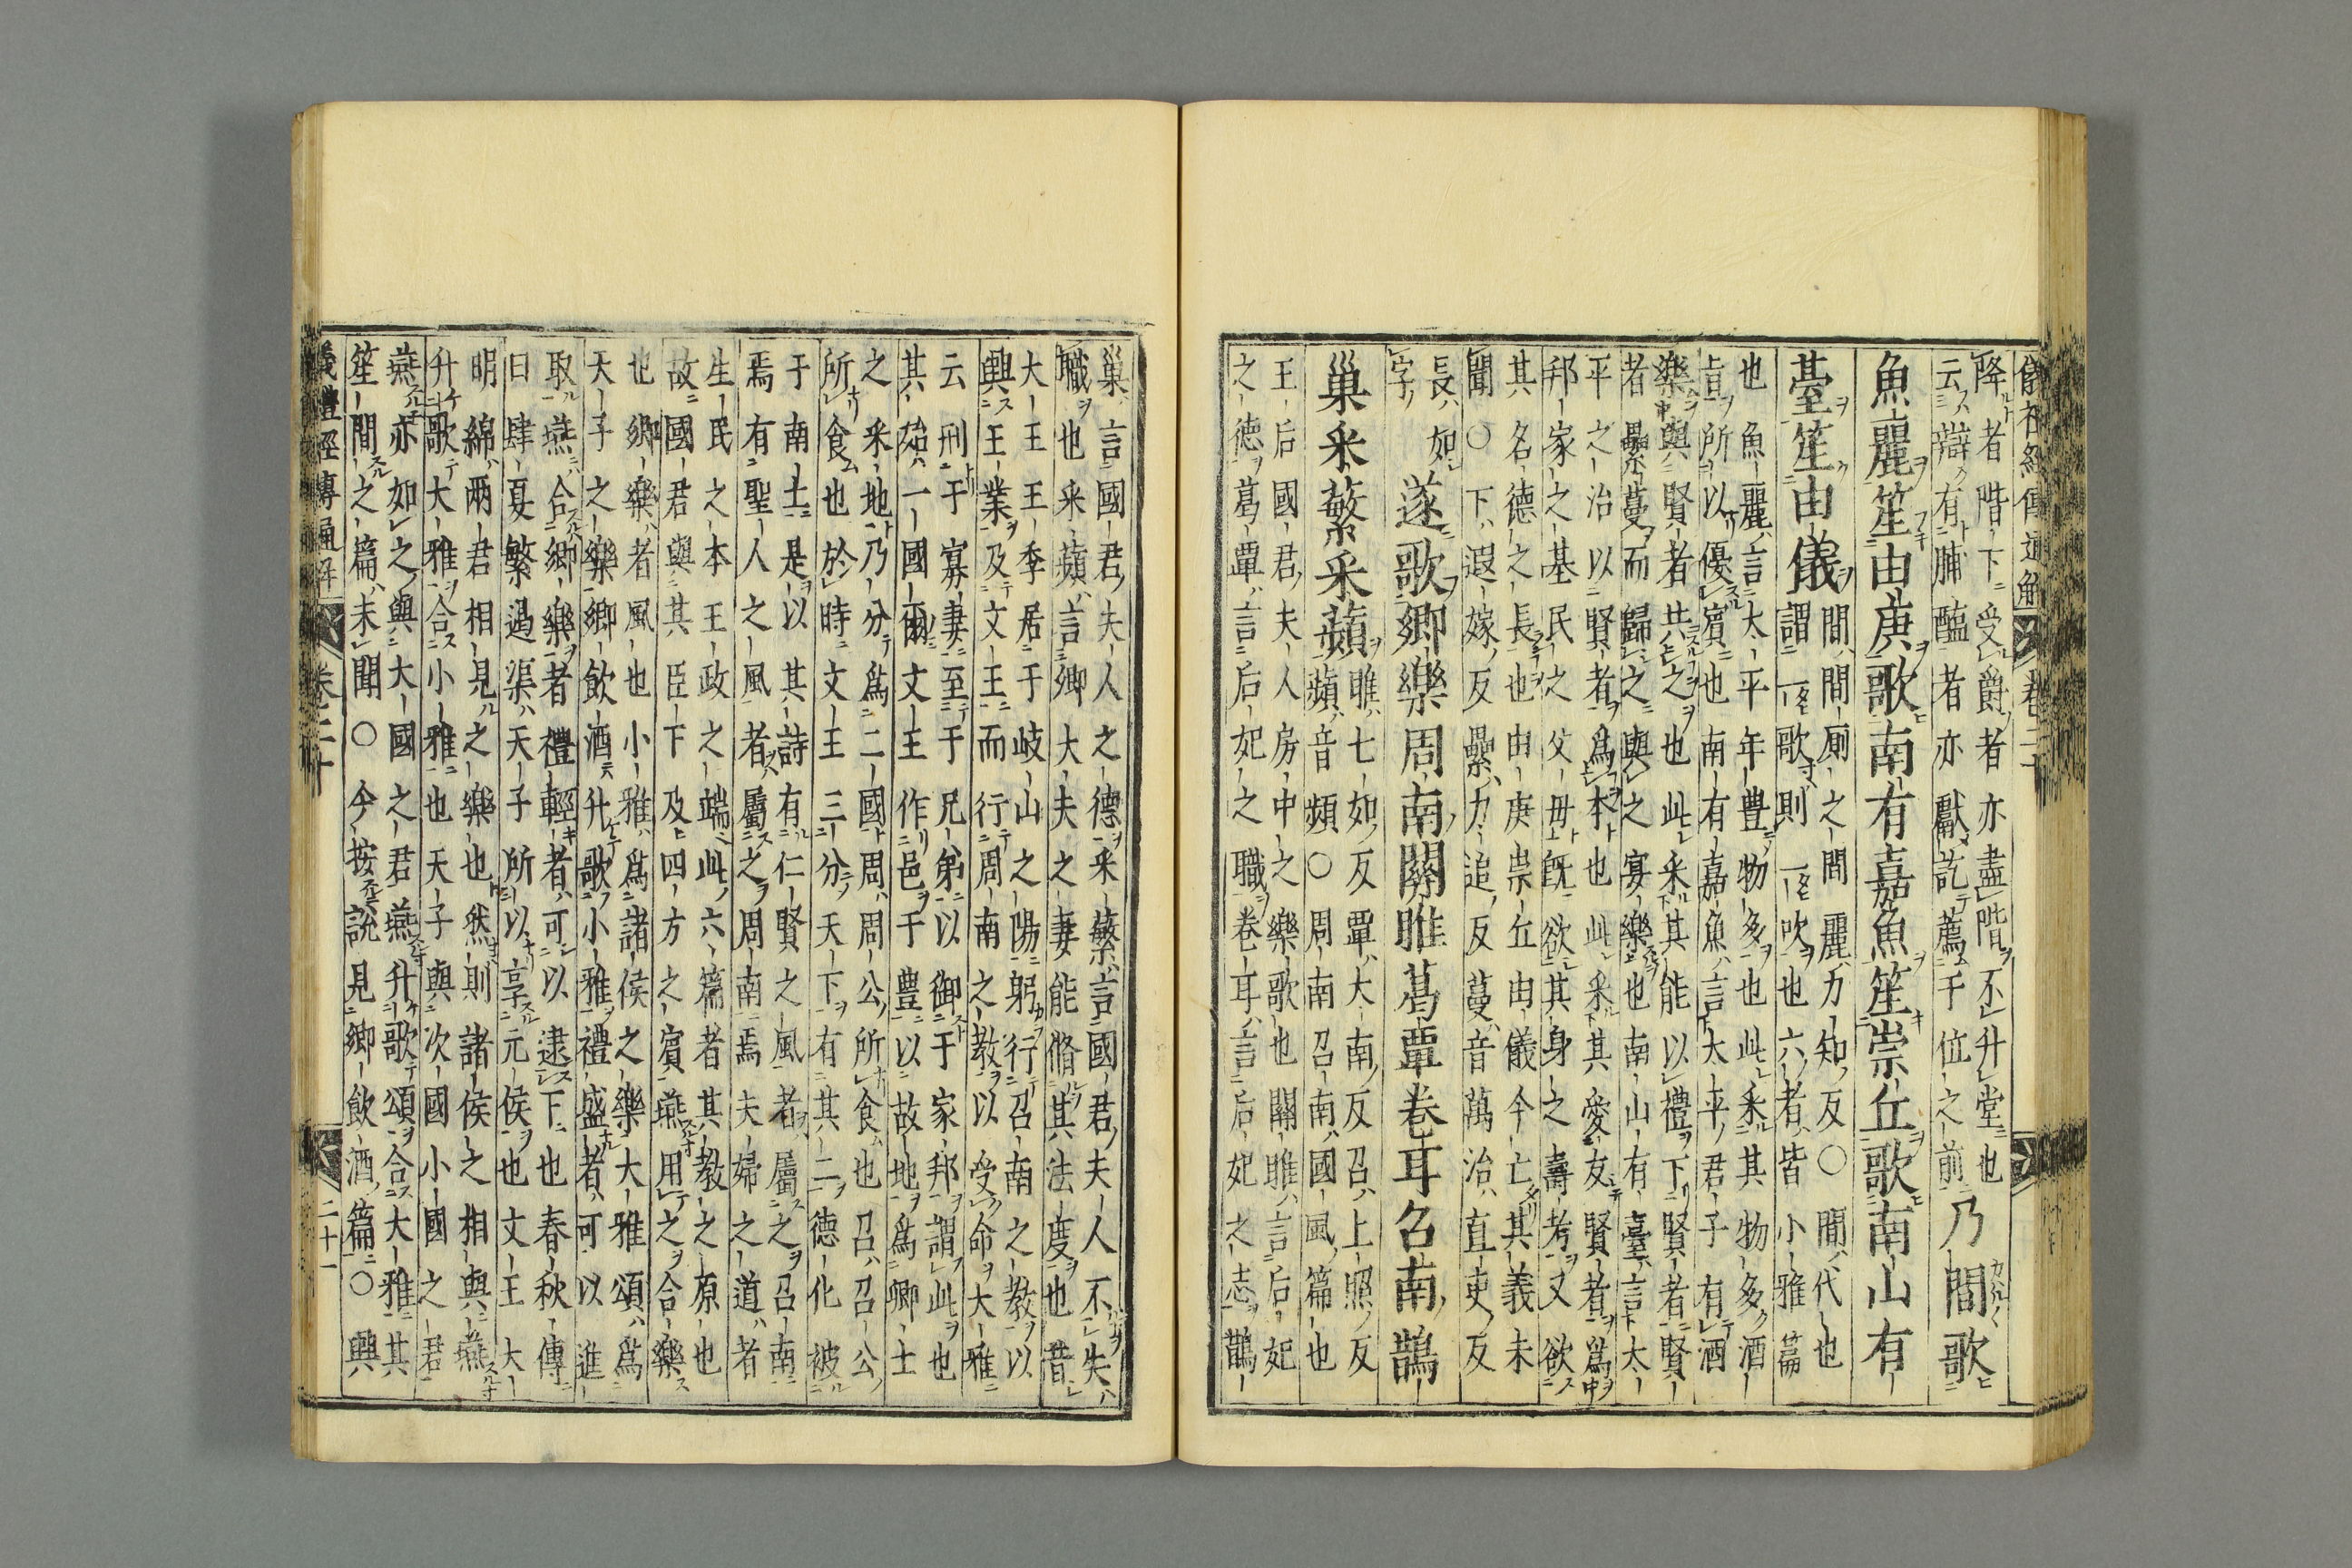 儀礼經傳通解 卷二十
降者階下受爵者亦盡階不升堂也
云辯有脯醢者亦獻訖薦于位之前
乃間歌
魚麗笙由庚歌南有嘉魚笙崇丘歌南山有
臺笙由儀
間間廁之間麗力知反○間代也
謂一歌則一吹也六者皆小雅篇
也魚麗言大平年豊物多也此采其物多酒
㫖所以優賓也南有嘉魚言大平君子有酒
樂與賢者共之也此采其能以禮下賢者賢
者纍蔓而歸之與之宴樂也南山有臺言太
平之治以賢者爲本也此采其愛友賢者爲
邦家之基民之父毋既欲其身之壽考又欲
其名德之長也由庚崇丘由儀今亡其義未
聞○下遐嫁反纍力追反蔓音萬治直吏反
長如
字
遂歌鄉樂周南關雎葛覃卷耳召南鵲
巢采蘩采蘋
雎七如反覃大南反召上照反
蘋音頻○周南召南國風篇也
王后國君夫人房中之樂歌也關雎言后妃
之德葛覃言后妃之職卷耳言后妃之志鵲
巢言國君夫人之德采蘩言國君夫人不失
職也采蘋言卿大夫之妻能脩其法度也昔
大王王季居于岐山之陽躬行召南之教以
興王業及文王而行周南之教以受命大雅
云刑于寡妻至于兄弟以御于家邦謂此也
其殆一國爾文王作邑于豊以故地爲卿士
之采地乃分爲二國周周公所食也召召公
所食也於時文王三分天下有其二德化被
于南土是以其詩有仁賢之風者屬之召南
焉有聖人之風者屬之周南焉夫婦之道者
生民之本王政之端此六篇者其教之原也
故國君與其臣下及四方之賓燕用之合樂
也鄉樂者風也小雅爲諸侯之樂大雅頌爲
天子之樂鄉飲酒升歌小雅禮盛者可以進
取燕合鄉樂者禮輕者可以逮下也春秋傳
曰肆夏繁遏渠天子所以享元侯也文王大
明綿兩君相見之樂也然則諸侯之相與燕
升歌大雅合小雅也天子與次國小國之君
燕亦如之與大國之君燕升歌頌合大雅其
笙間之篇未聞○今按說見鄉飲酒篇○興
儀禮經傳通解 卷二十 二十一